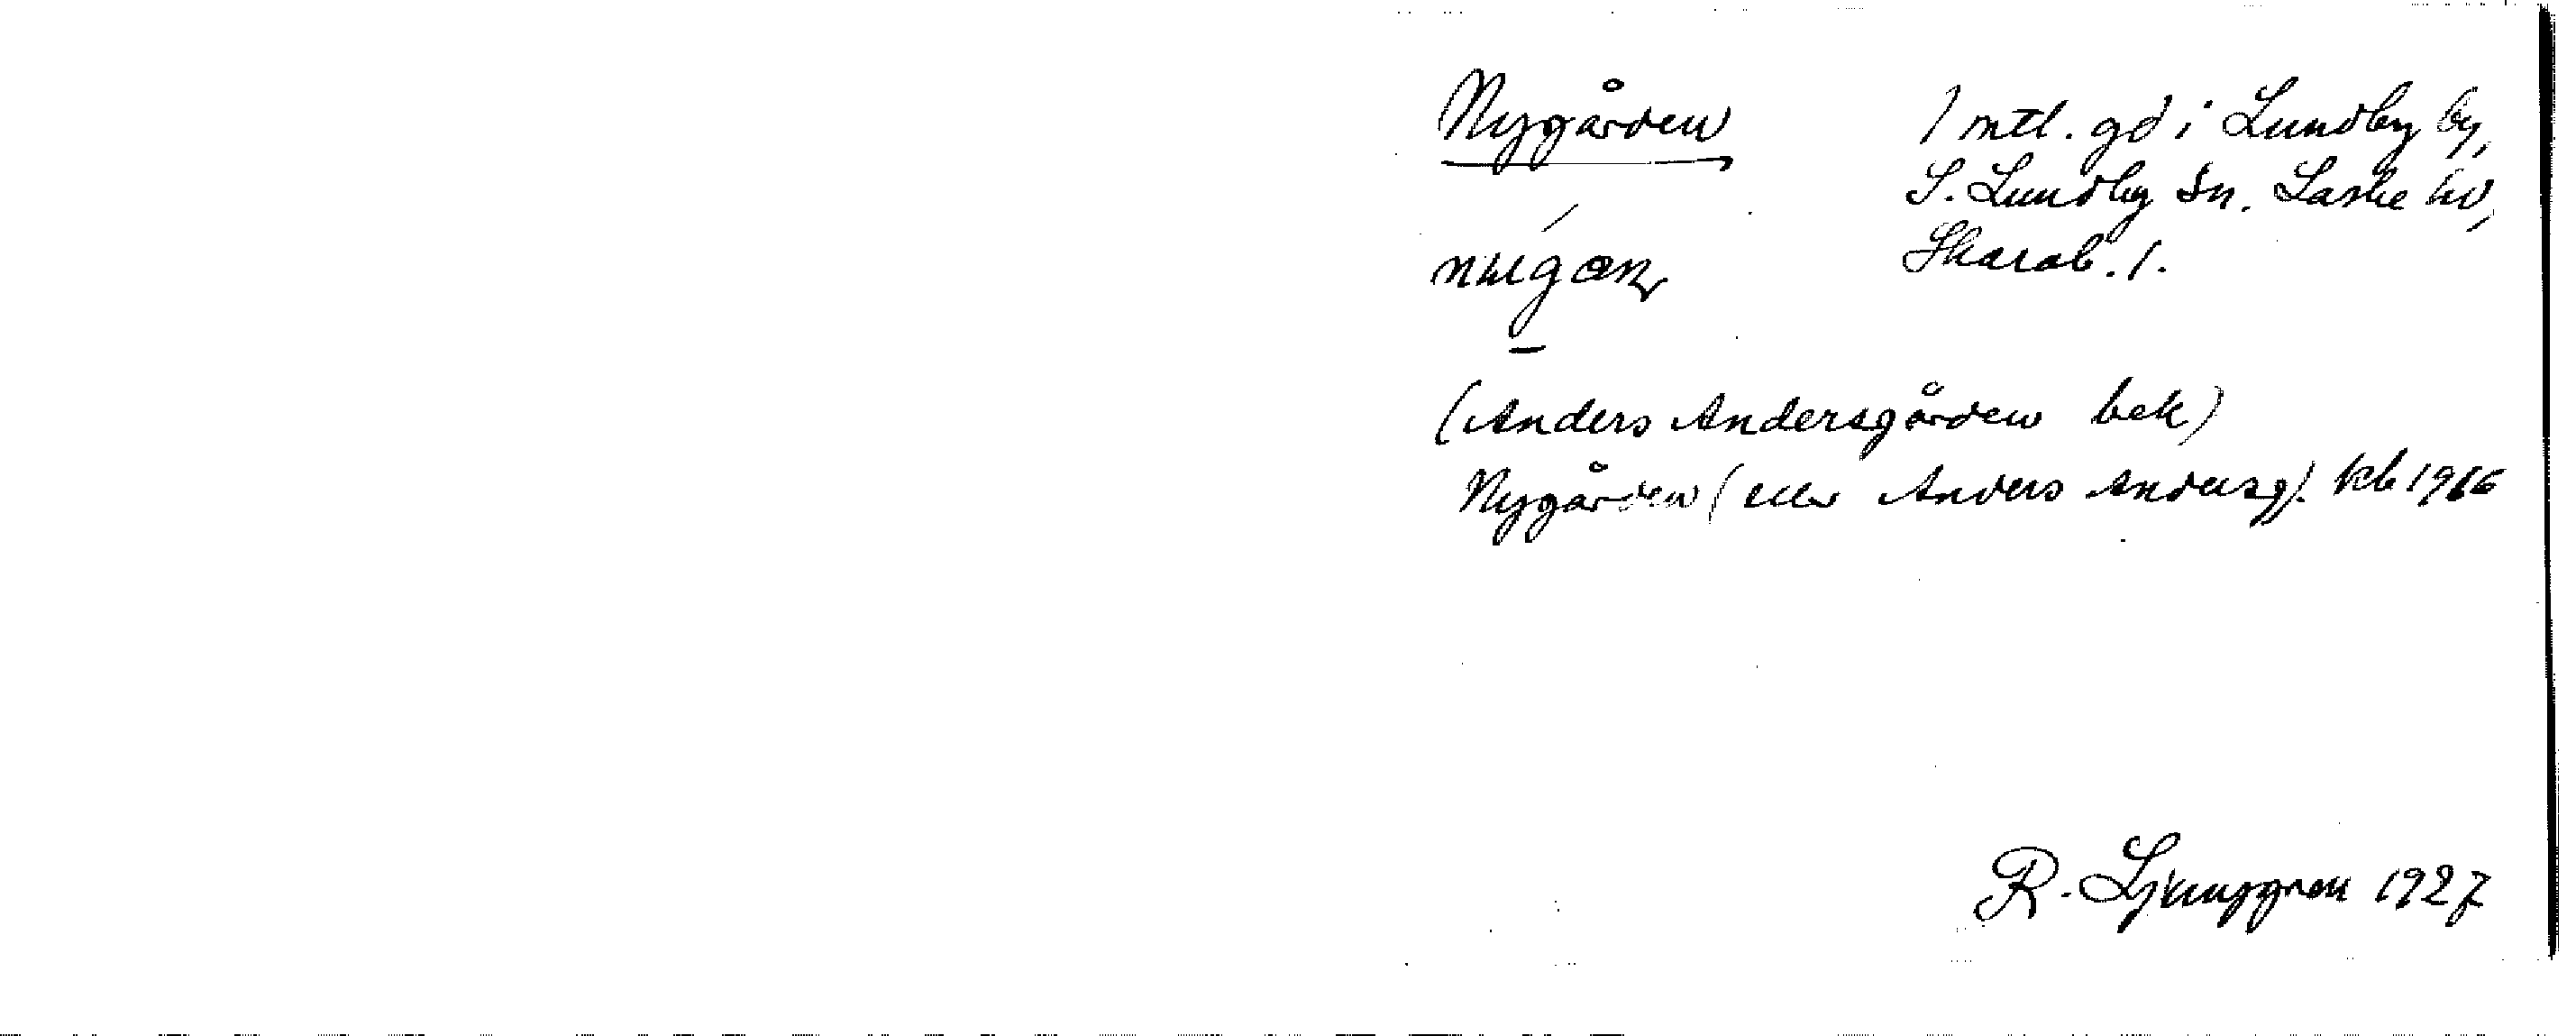 Nygården
1 mtl. gd i Lundby by,
S. Lundby sn. Laske hd,
Skarab. l.
(Anders Andersgården bek)
Nygården (eller Anders Andersg). kb
R. Ljunggren 1927